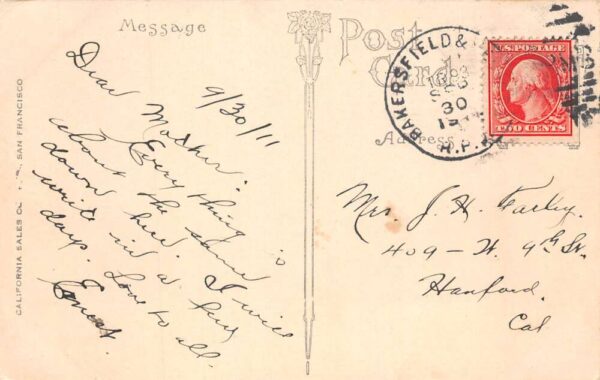 Message
Post Card
Address
CALIFORNIA SALES CO SAN FRANCISCO
9/30/11
Dear Mother.
Everything is
about the same
down here. I will
write in a few
days. Love to all.
Ernest.
BAKERSFIELD &
SEP
30
R.P.
U.S. POSTAGE
TWO CENTS
Mrs. J. H. Farley.
409 – W. 9th St.
Hanford.
Cal